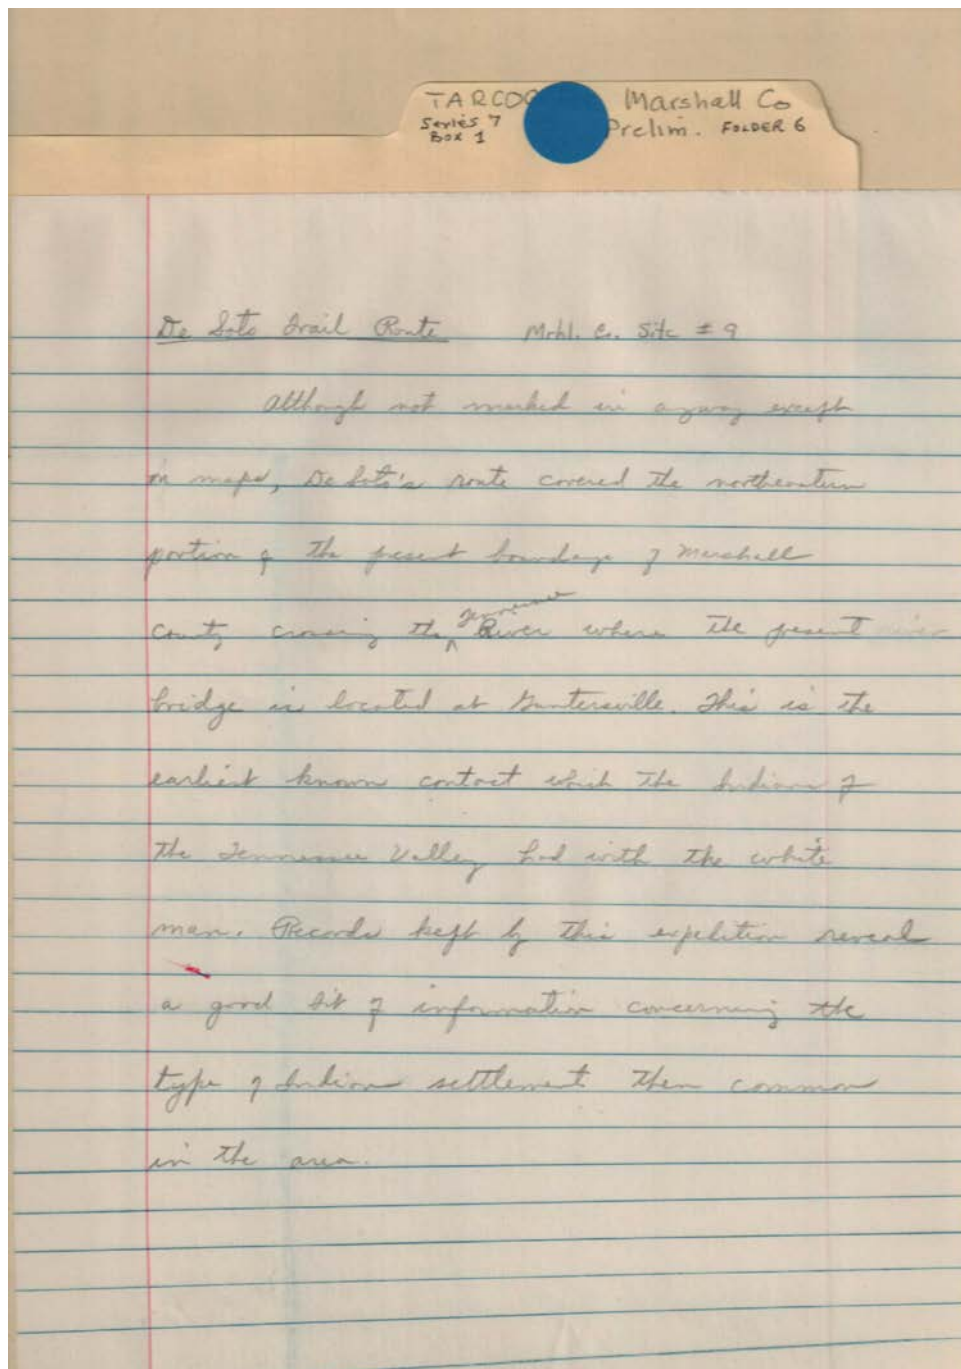 TARCOG Marshall Co
Series 7 Prelim. FOLDER 6
Box 1
De Soto Trail Route Mrhl. Co. Site # 9
Although not marked in anyway except
on maps, De Soto's route covered the northeastern
portion of the present boundary of Marshall
County crossing the Tennessee River where the present river
bridge is located at Guntersville. This is the
earliest known contact which the Indians of
the Tennessee Valley had with the white
man. Records kept by this expedition reveal
a good bit of information concerning the
type of Indian settlement then common
in the area.